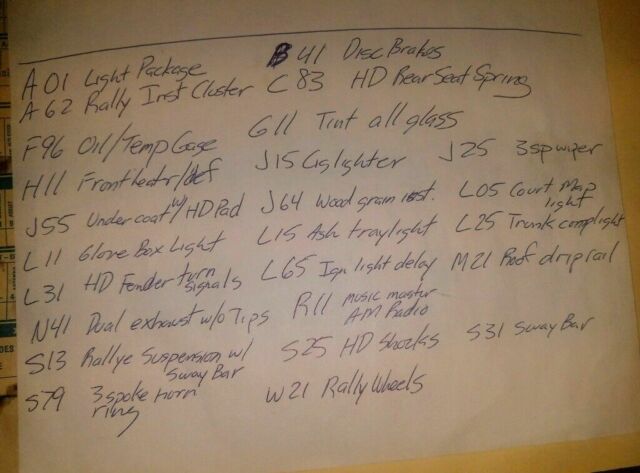 A01 Light Package B41 Disc Brakes
A62 Rally Inst Cluster C83 HD Rear Seat Spring
F96 Oil/Temp Gage G11 Tint all glass
H11 Front heater/def J15 Ciglighter J25 3spwizer
J55 Undercoat w/ HD Pad J64 Wood grain inst. L05 Court Map light
L11 Glove Box Light L15 Ash tray light L25 Trunk comp light
L31 HD Fender turn signals L65 Ign light delay M21 Roof drip rail
N41 Dual exhaust w/o Tips R11 music mastur AM Radio
S13 Rallye Suspension w/ Sway Bar S25 HD Shocks S31 Sway Bar
S79 3 spoke horn ring W21 Rally Wheels